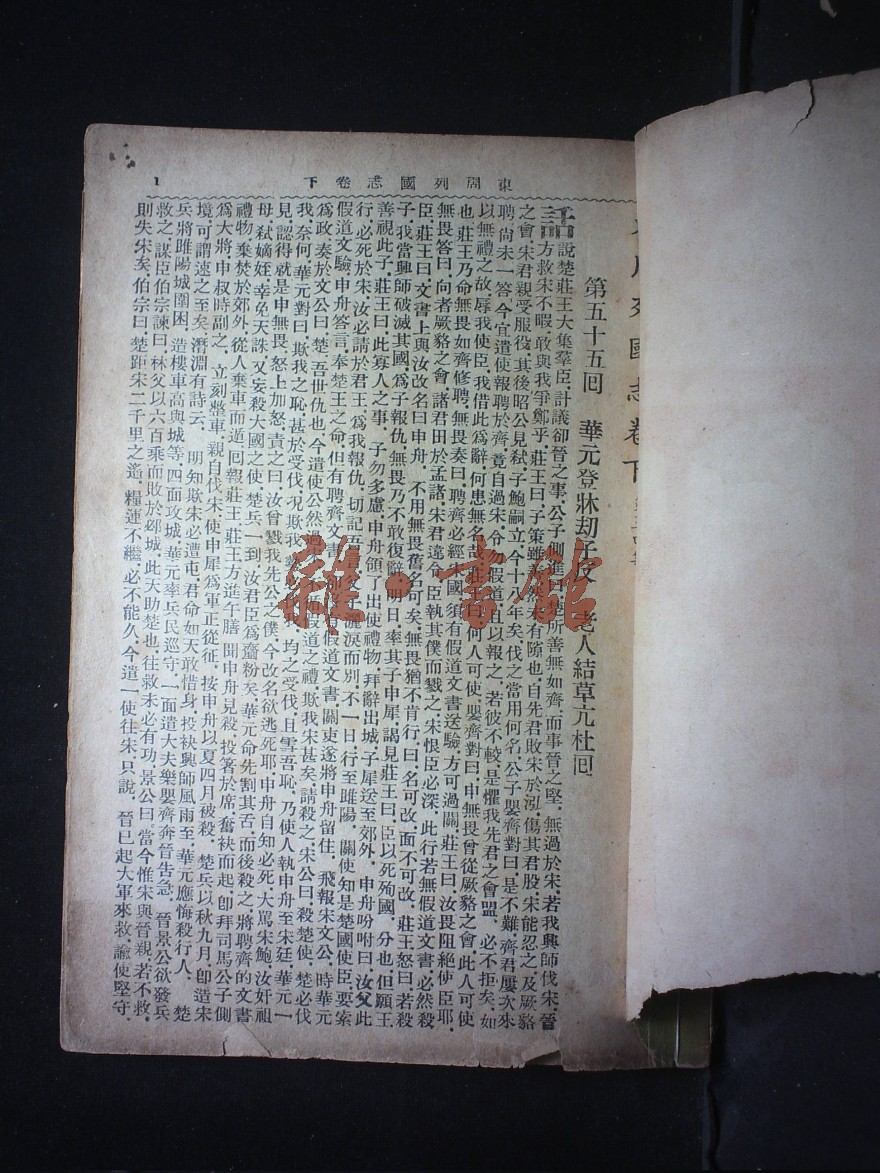 東周列國志卷下
1
周列國志卷下
第五十五回　華元登牀刧子反　老人結草亢杜回
話說楚莊王大集羣臣．計議卻晉之事．公子側進曰．楚所善無如齊．而事晉之堅．無過於宋．若我興師伐宋．晉
方救宋不暇．敢與我爭鄭乎．莊王曰．子策雖善．然未有隙也．自先君敗宋於泓．傷其君股．宋能忍之．及厥貉
之會．宋君親受服役．其後昭公見弒．子鮑嗣立．今十八年矣．伐之當用何名．公子嬰齊對曰．是不難．齊君屢次來
聘．尚未一答．今宜遣使報聘於齊．竟自過宋．令勿假道．且以報之．若彼不較．是懼我．先君之會盟．必不拒矣．如
以無禮之故．辱我使臣．我借此爲辭．何患無名哉．莊王曰．何人可使．嬰齊對曰．申無畏曾從厥貉之會．此人可使
也．莊王乃命無畏如齊修聘．無畏奏曰．聘齊必經宋國．須有假道文書送驗．方可過關．莊王曰．汝畏阻絕使臣耶．
無畏答曰．向者厥貉之會．諸君田於孟諸．宋君違令．臣執其僕而戮之．宋恨臣必深．此行若無假道文書．必然殺
臣．莊王曰．文書上與汝改名曰申舟．不用無畏舊名可矣．無畏猶不肯行．曰．名可改．面不可改．莊王怒曰．若殺
子．我當興師破滅其國．爲子報仇．無畏乃不敢復辭．明日．率其子申犀．謁見莊王曰．臣以死殉國．分也．但願王
善視此子．莊王曰．此寡人之事．子勿多慮．申舟領了出使禮物．拜辭出城．子犀送至郊外．申舟吩咐曰．汝父此
行．必死於宋．汝必請於君王．爲我報仇．切記吾　　　灑淚而別．不一日．行至睢陽．關使知是楚國使臣．要索
假道文驗．申舟答言．奉楚王之命．但有聘齊文書．　　有假道文書．關吏遂將申舟留住．飛報宋文公．時華元
爲政．奏於文公曰．楚．吾世仇也．今遣使公然過　　不循假道之禮．欺我宋甚矣．請殺之．宋公曰．殺楚使．楚必伐
我．奈何．華元對曰．欺我之恥．甚於受伐．况欺我　　　　均之受伐．且雪吾恥．乃使人執申舟至宋廷．華元一
見．認得就是申無畏．怒上加怒．責之曰．汝曾戮我先公之僕．今改名欲逃死耶．申舟自知必死．大罵宋鮑．汝奸祖
母．弒嫡姪．幸免天誅．又妄殺大國之使．楚兵一到．汝君臣爲齏粉矣．華元命先割其舌．而後殺之．將聘齊的文書
禮物．乗焚於郊外．從人棄車而遁．回報莊王．莊王方進午膳．聞申舟見殺．投箸於席．奮袂而起．卽拜司馬公子側
爲大將．申叔時副之．立刻整車．親自伐宋．使申犀爲軍正從征．按申舟以夏四月被殺．楚兵以秋九月．卽造宋
境．可謂速之至矣．潛淵有詩云．明知欺宋必遭屯．君命如天敢惜身．投袂興師風雨至．華元應悔殺行人．楚
兵將睢陽城圍困．造樓車高與城等．四面攻城．華元率兵民巡守．一面遣大夫樂嬰齊奔晉吿急．晉景公欲發兵
救之．謀臣伯宗諫曰．林父以六百乘而敗於邲城．此天助楚也．往救未必有功．景公曰．當今惟宋與晉親．若不救．
則失宋矣．伯宗曰．楚距宋二千里之遙．糧運不繼．必不能久．今遣一使往宋．只說．晉已起大軍來救．諭使堅守．
雜·書館